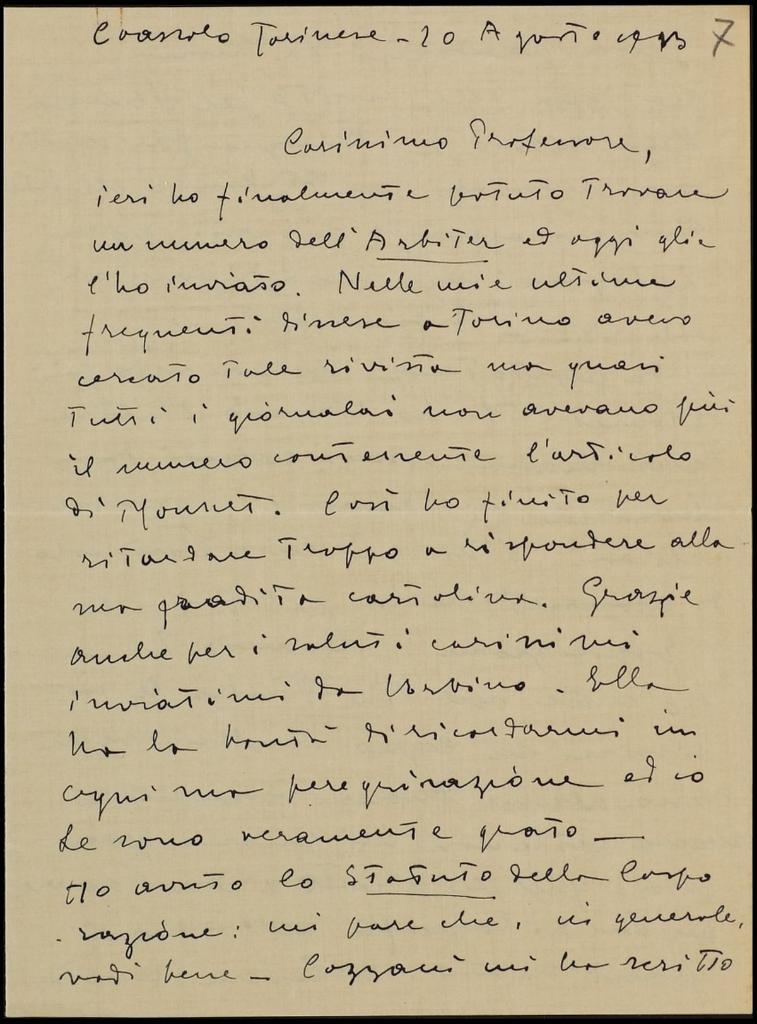 Coassolo Torinese - 20 Agosto 1943 7
Carissimo Professore,
ieri ho finalmente potuto trovare
un numero dell'Arbiter ed oggi glie
l'ho inviato. Nelle mie ultime
frequenti discese a Torino avevo
cercato tale rivista ma quasi
tutti i giornalai non avevano più
il numero contenente l'articolo
di Mousset. Così ho finito per
ritardare troppo a rispondere alla
sua gradita cartolina. Grazie
anche per i saluti carissimi
inviatimi da Urbino. Ella
ha la bontà di ricordarmi in
ogni sua peregrinazione ed io
Le sono veramente grato —
Ho avuto lo Statuto della Corpo
razione: mi pare che, in generale,
vadi bene — Cozzani mi ha scritto